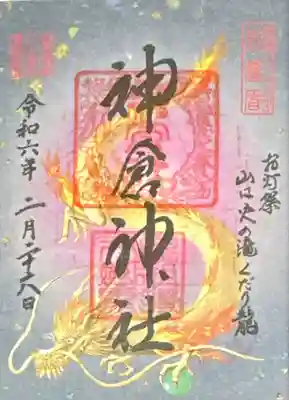 お灯祭
山は火の滝 くだり龍
神倉神社
令和六年 二月二十六日